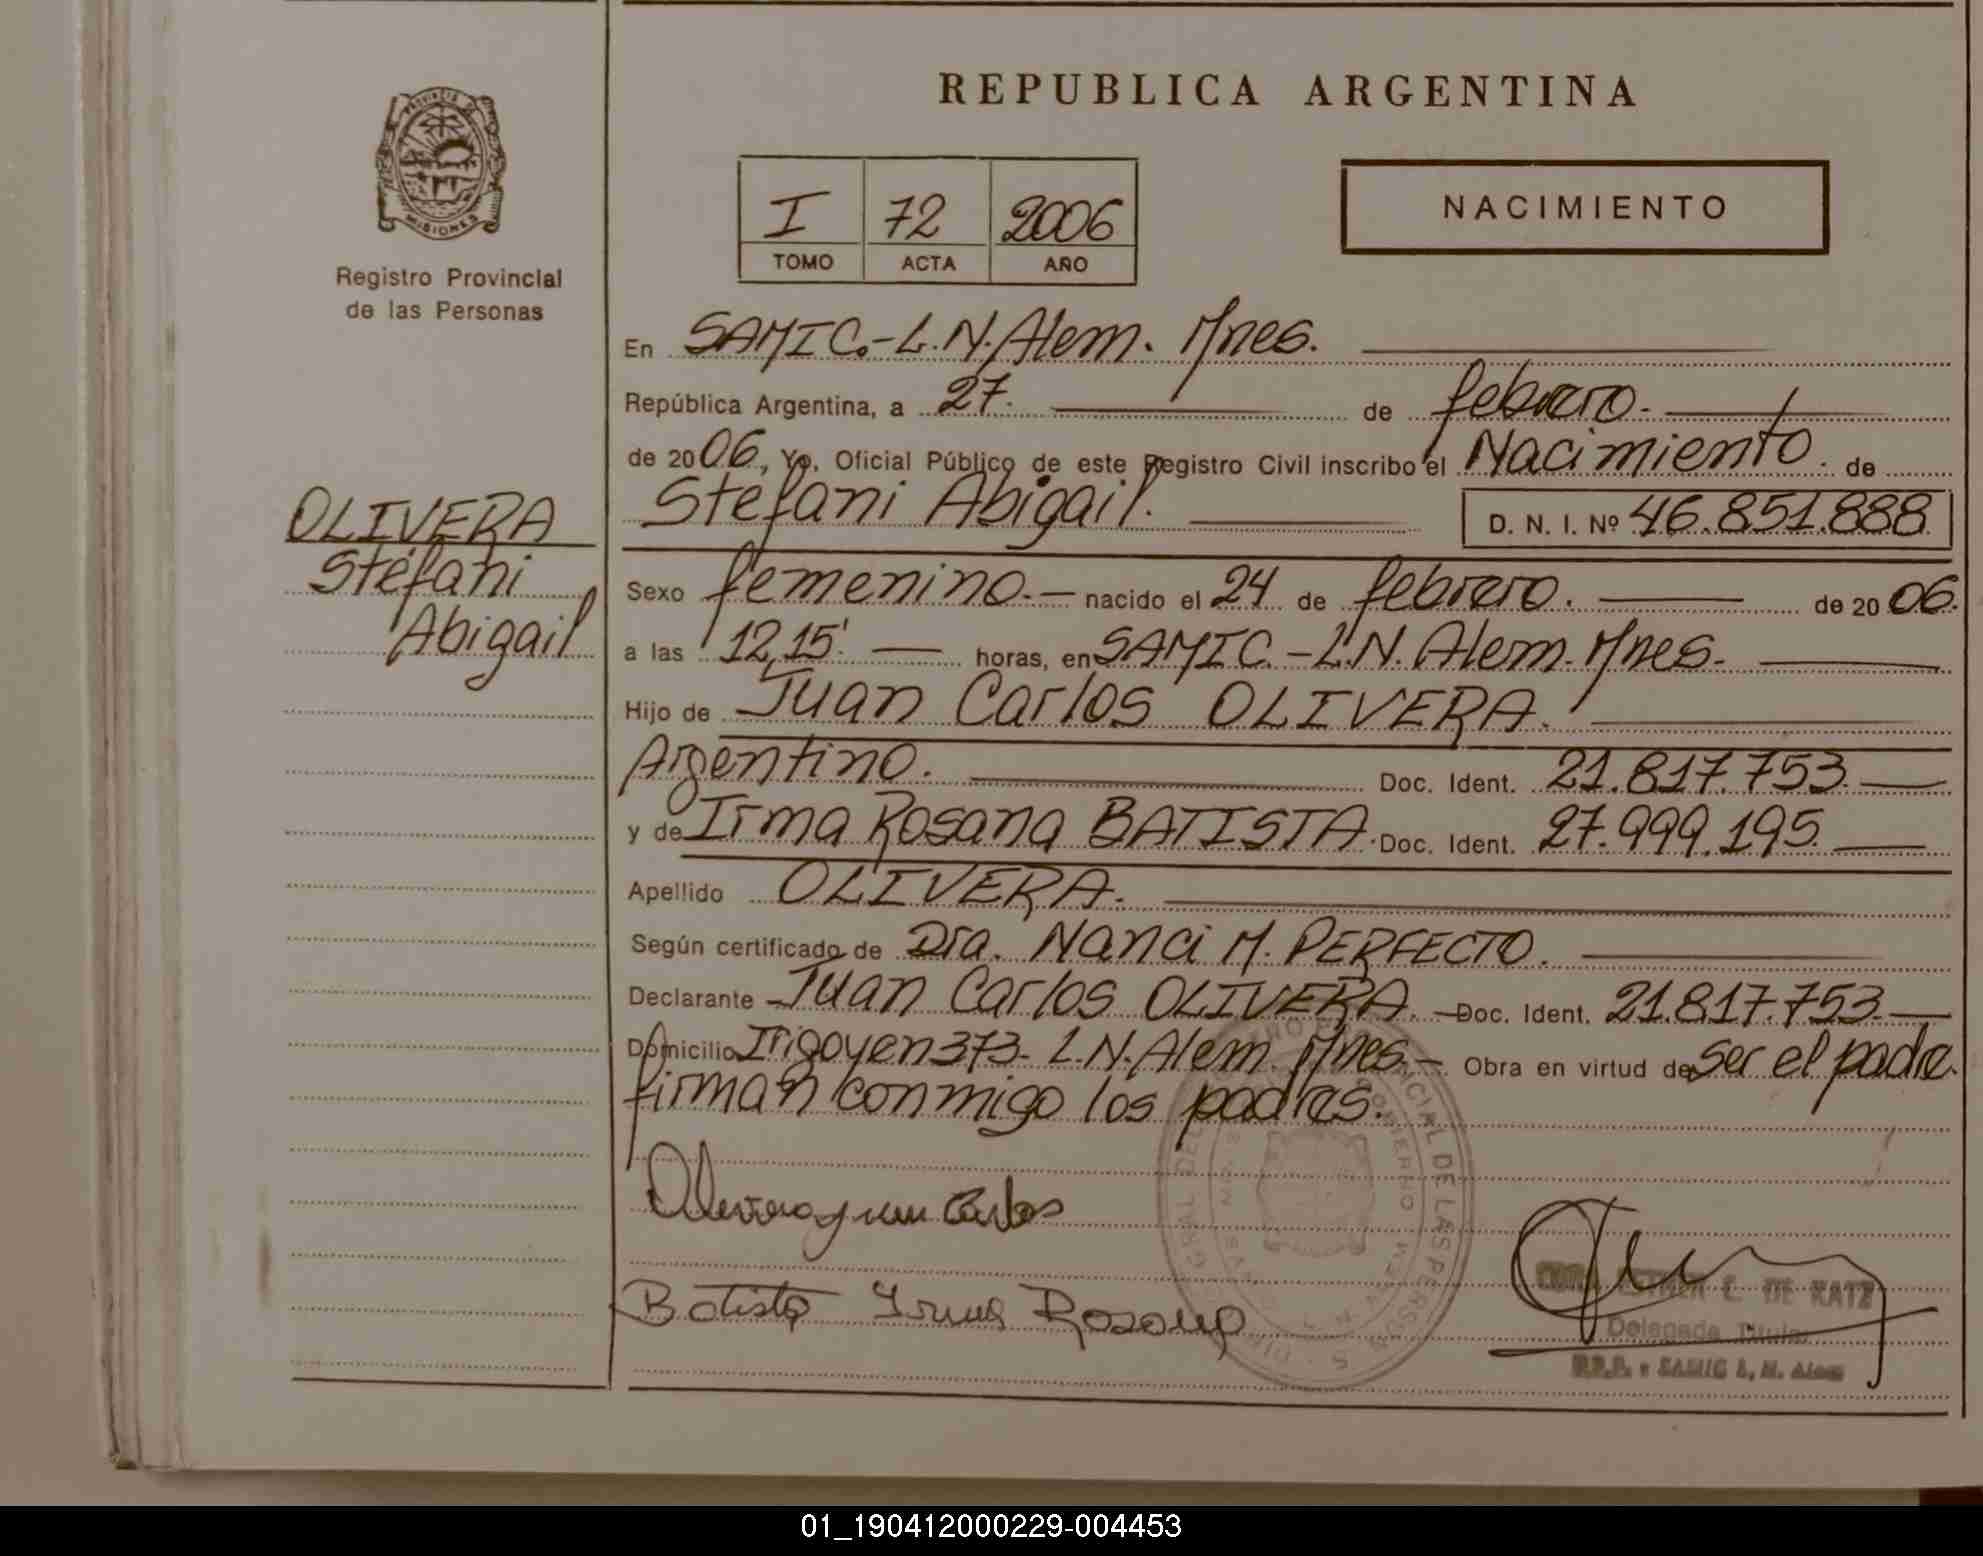 REPUBLICA ARGENTINA
PROVINCIA DE
MISIONES
Registro Provincial
de las Personas
I 72 2006
TOMO ACTA AÑO
NACIMIENTO
En SAMIC.-L.N.Alem. Mnes.
República Argentina, a 27. de febrero.
de 2006, Yo, Oficial Público de este Registro Civil inscribo el Nacimiento. de
Stéfani Abigail. D. N. I. Nº 46.851.888
OLIVERA
Stéfani
Abigail
Sexo femenino.- nacido el 24 de febrero. de 2006.
a las 12,15' horas, en SAMIC.-L.N. Alem. Mnes.
Hijo de Juan Carlos OLIVERA.
Argentino. Doc. Ident. 21.817.753.
y de Irma Rosana BATISTA. Doc. Ident. 27.999.195.
Apellido OLIVERA.
Según certificado de Dra. Nanci M. PERFECTO.
Declarante Juan Carlos OLIVERA. Doc. Ident. 21.817.753.
Domicilio Irigoyen 373. L.N.Alem. Mnes.- Obra en virtud de ser el padre.
firman conmigo los padres.
Olivera Juan Carlos
Batista Irma Rosana
DE KATZ
Delegada Titular
R.P.P. - SAMIC L. N. Alem
01_190412000229-004453